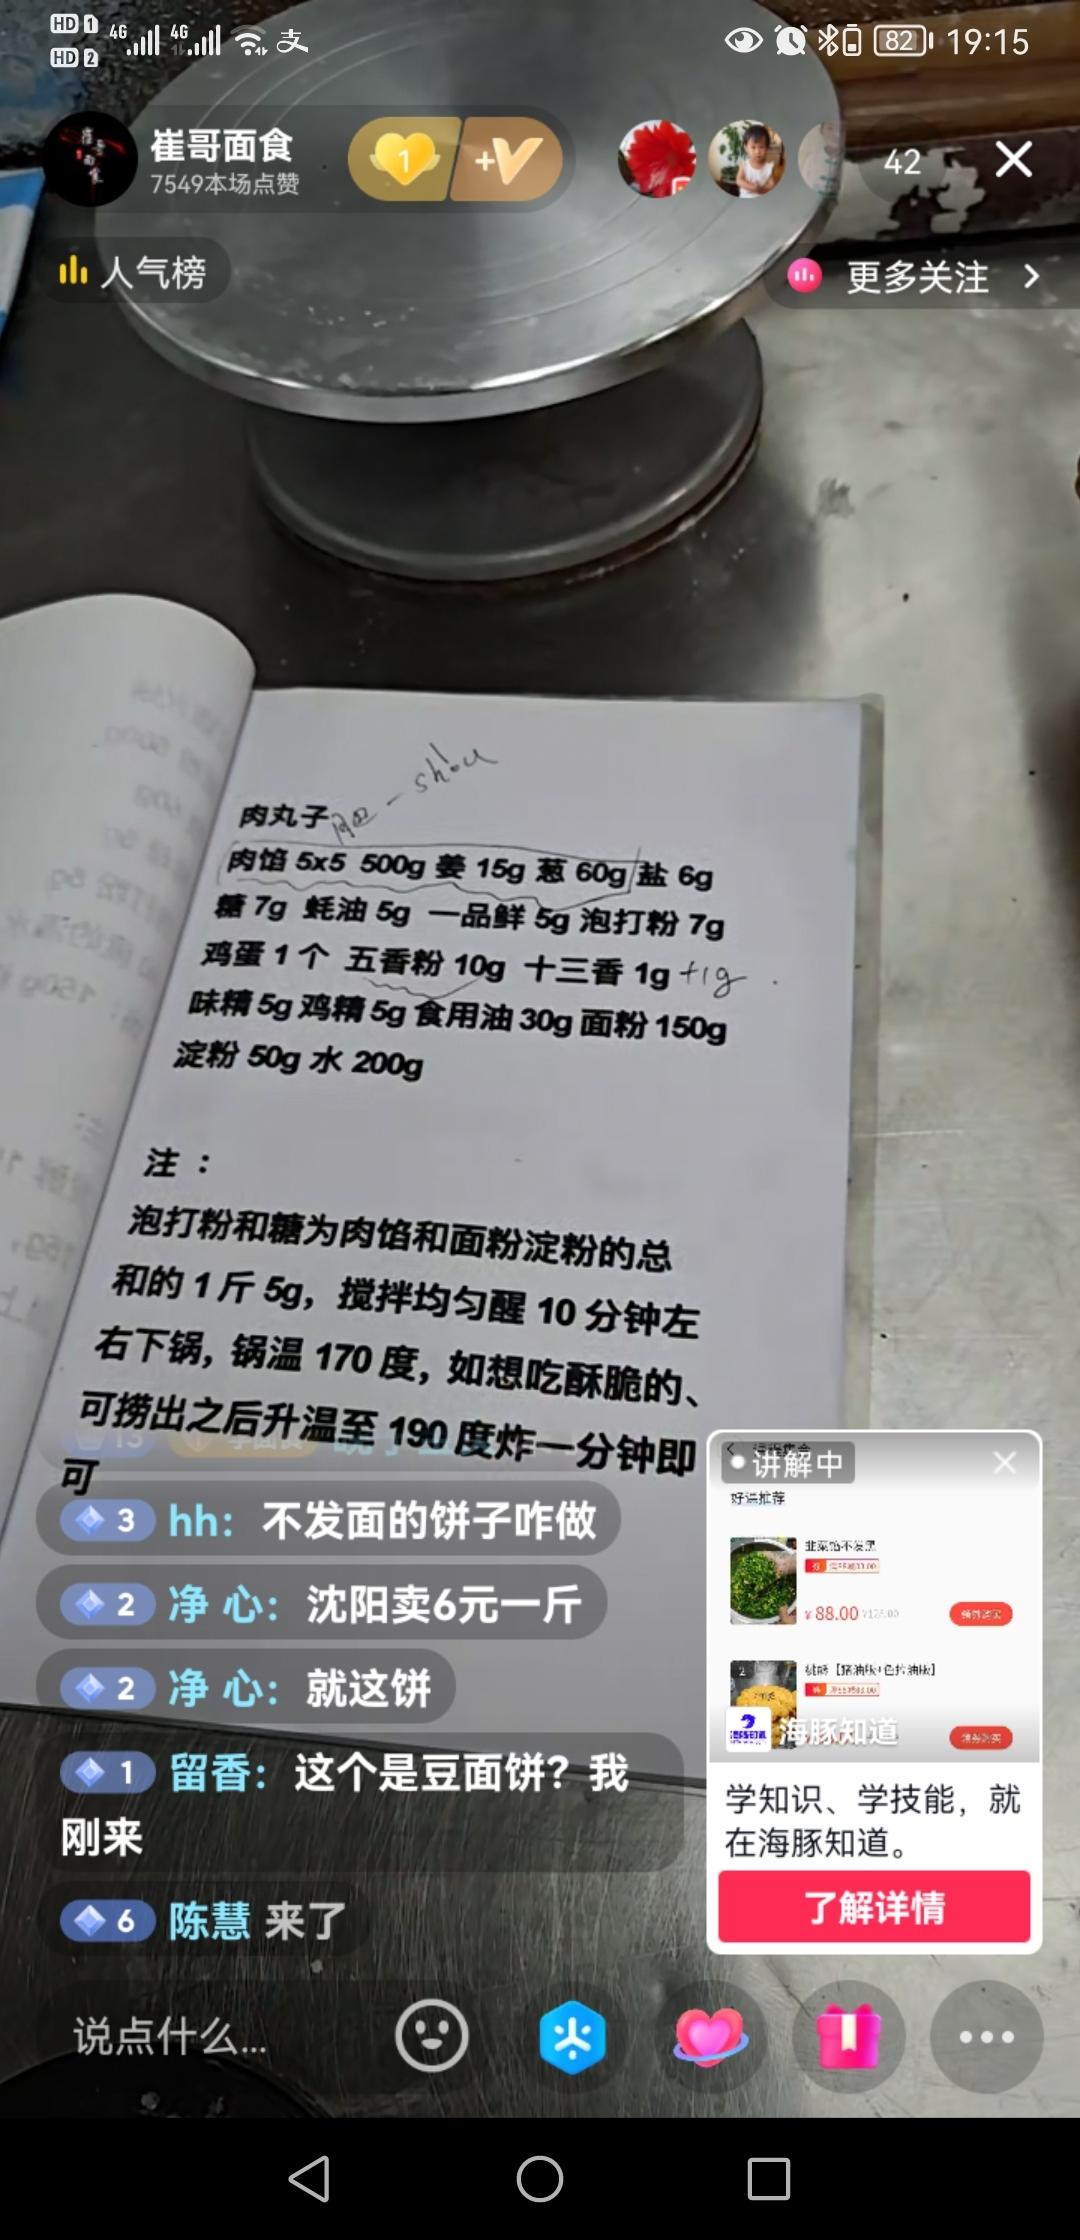 HD 1 4G 4G 支 82 19:15
HD 2
崔哥面食
7549本场点赞
1
+
42
人气榜
更多关注
shou
肉丸子
肉馅 5x5 500g 姜 15g 葱 60g 盐 6g
糖 7g 蚝油 5g 一品鲜 5g 泡打粉 7g
鸡蛋 1 个 五香粉 10g 十三香 1g +1g
味精 5g 鸡精 5g 食用油 30g 面粉 150g
淀粉 50g 水 200g
注：
泡打粉和糖为肉馅和面粉淀粉的总
和的 1 斤 5g，搅拌均匀醒 10 分钟左
右下锅，锅温 170 度，如想吃酥脆的、
可捞出之后升温至 190 度炸一分钟即
可
3 hh： 不发面的饼子咋做
2 净 心： 沈阳卖6元一斤
2 净 心： 就这饼
1 留香： 这个是豆面饼？我
刚来
6 陈慧 来了
讲解中
好课推荐
韭菜馅不发黑
¥88.00
2
桃酥【猪油版+色拉油版】
海豚知道
学知识、学技能，就
在海豚知道。
了解详情
说点什么...